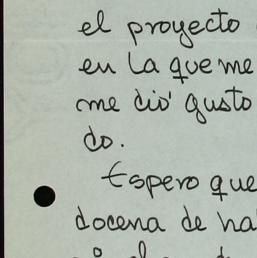 el proyecto
en la que me
me dió gusto
do.
Espero que
docena de ha